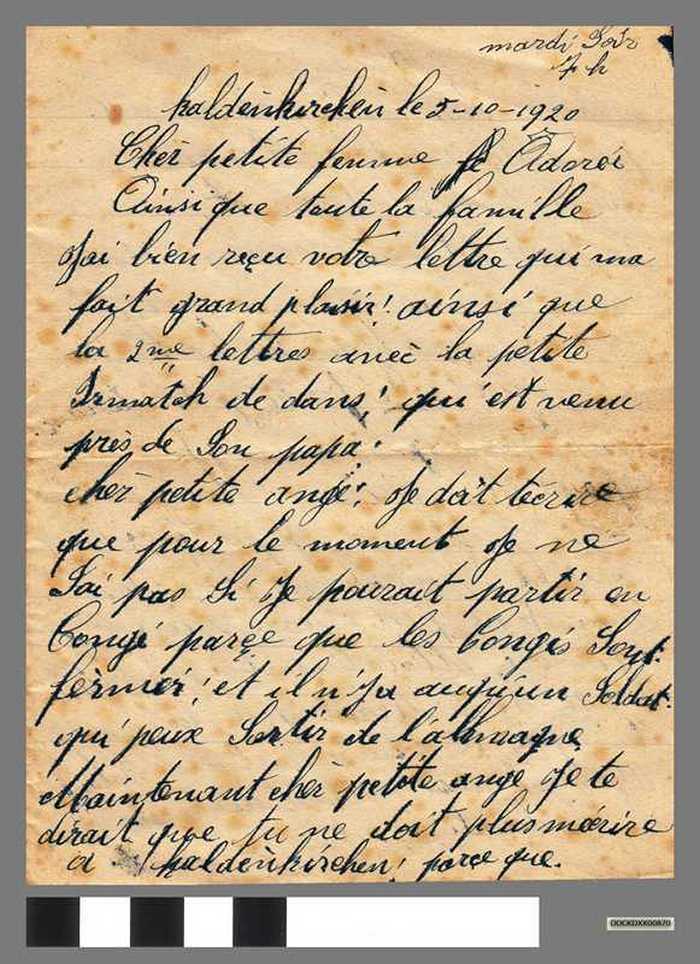 mardi Soir
7 h
Kaldenkirchen le 5-10-1920
Cher petite femme Adorée
Ainsi que toute la famille
Jai bien reçu votre lettre qui ma
fait grand plaisir! ainsi que
la 2me lettres avec la petite
de dans! qu'est venu
près de Son papa!
cher petite ange! Je doit técrire
que pour le moment Je ne
Sai pas Si Je pourait partir en
Congé parçe que les Congés Sont
fermér! et il n'ja auqu'un Soldat
qui peux Sortir de l'allmagne
Maintenant cher petite ange Je te
dirait que tu ne doit plus mécrire
a Kaldenkirchen! parçe que.
DOCKDXK00870